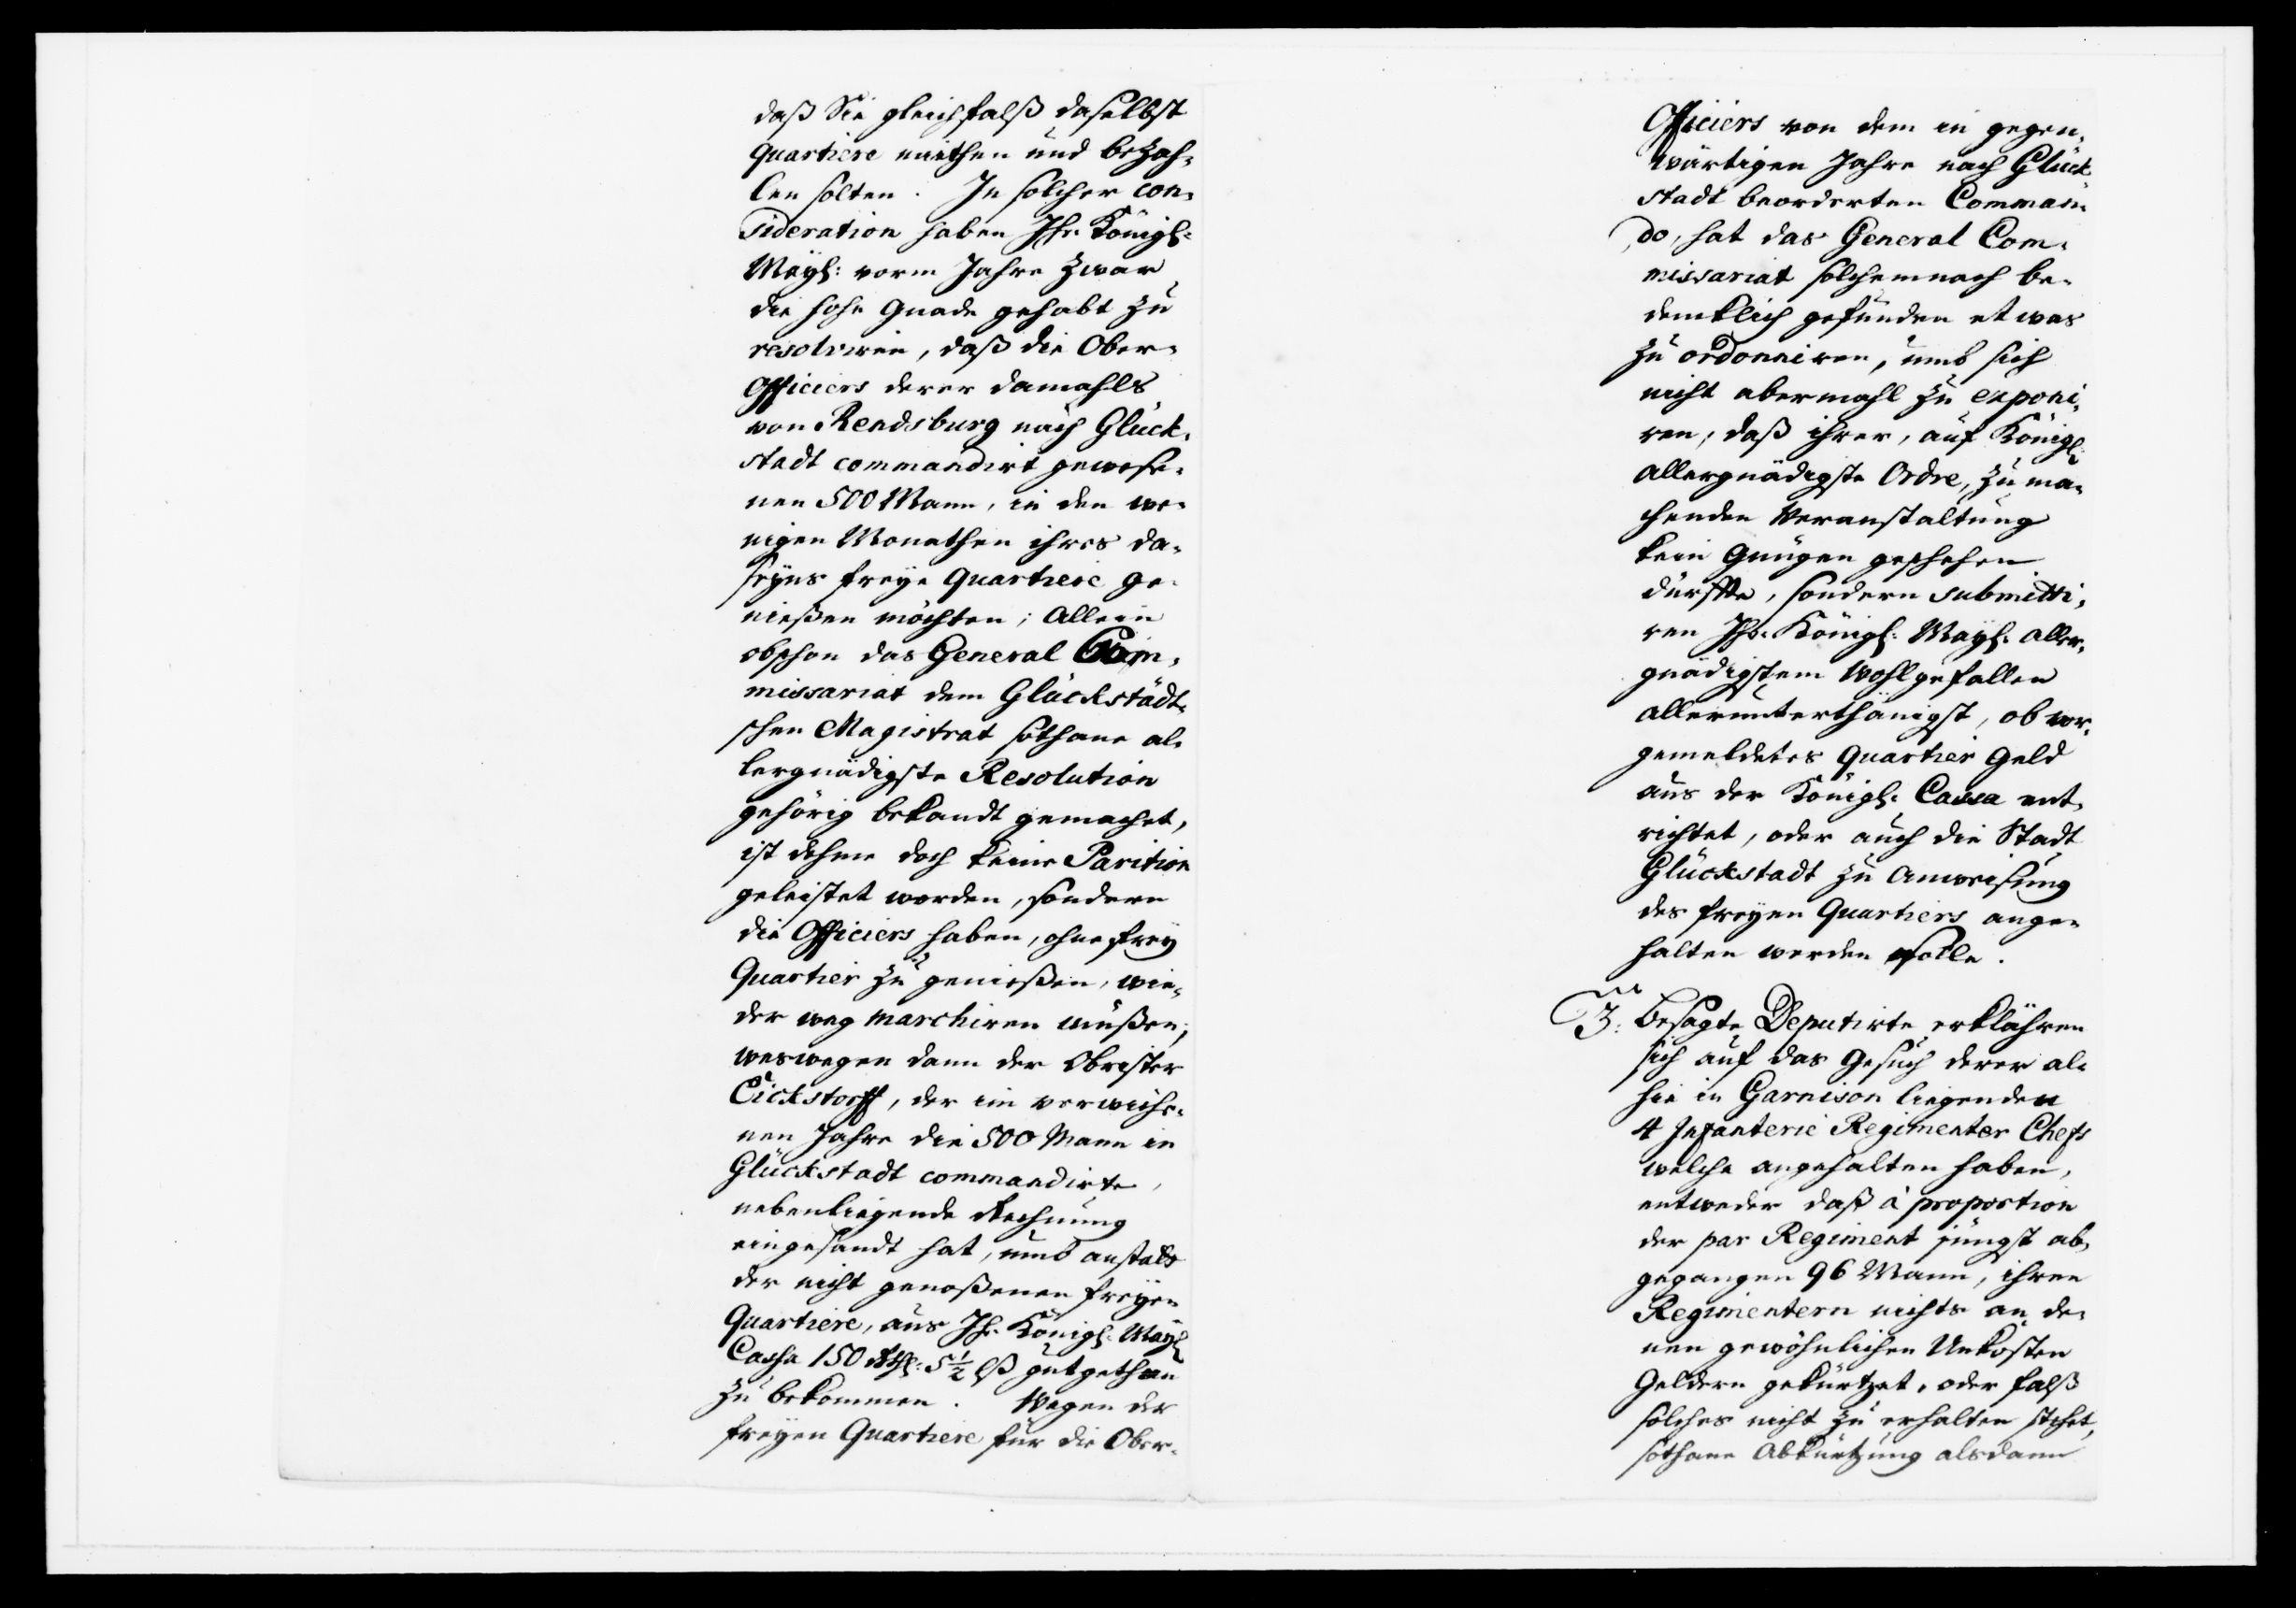 daß Sie gleichfalß daselbst
quartiere miethen und bezah-
len solten. In solcher con-
sideration haben Ihr. Königl:
Mayt: vorm Jahre zwar
die hohe Gnade gehabt zu
resolviren, daß die Ober-
Officiers derer damahls
von Rendsburg nach Glück-
stadt commandirt gewese-
nen 500 Mann, in den we-
nigen Monathen ihres da-
seyns freye Quartiere ge-
nießen möchten; Allein
obschon das General Com-
missariat dem Glückstädt-
schen Magistrat sothane al-
lergnädigste Resolution
gehörig bekandt gemachet,
ist dehme doch keine Parition
geleistet worden, sondern
die Officiers haben, ohne frey
Quartier zu genießen, wie-
der weg marchiren müßen;
weswegen dann der Obrister
Eickstorff, der im verwiche-
nen Jahre die 500 Mann in
Glückstadt commandirte,
nebenliegende Rechnung
eingesandt hat, umb anstatt
der nicht genoßenen freyen
Quartiere, aus Ihr. Königl: Mayt:
Cassa 150 Rthl: 5½ lß gutgethan
zu bekommen. Wegen der
freyen Quartiere für die Ober-
Officiers von dem in gegen-
wärtigen Jahre nach Glück-
stadt beorderten Comman-
do, hat das General Com-
missariat solchemnach be-
dencklich gefunden etwas
zu ordonniren, umb sich
nicht abermahl zu exponi-
ren, daß ihrer, auf Königl:
allergnädigste Ordre, zu ma-
chenden Veranstaltung
kein Gnügen geschehen
dürffte, sondern submitti-
ren Ihr. Königl: Mayt: aller-
gnädigstem Wohlgefallen
allerunterthänigst, ob vor-
gemeldetes Quartier Geld
aus der Königl: Cassa ent-
richtet, oder auch die Stadt
Glückstadt zu Anweisung
des freyen Quartiers ange-
halten werden solle.
3: Besagte Deputirte erklähren
sich auf das Gesuch derer al-
hie in Garnison liegenden
4 Infanterie Regimenter Chefs
welche angehalten haben,
entweder daß à proportion
der par Regiment jüngst ab-
gegangen 96 Mann, ihren
Regimentern nichts an de-
nen gewöhnlichen Unkosten
Geldern gekürtzet, oder falß
solches nicht zu erhalten stehet,
sothane Abkürtzung alsdann